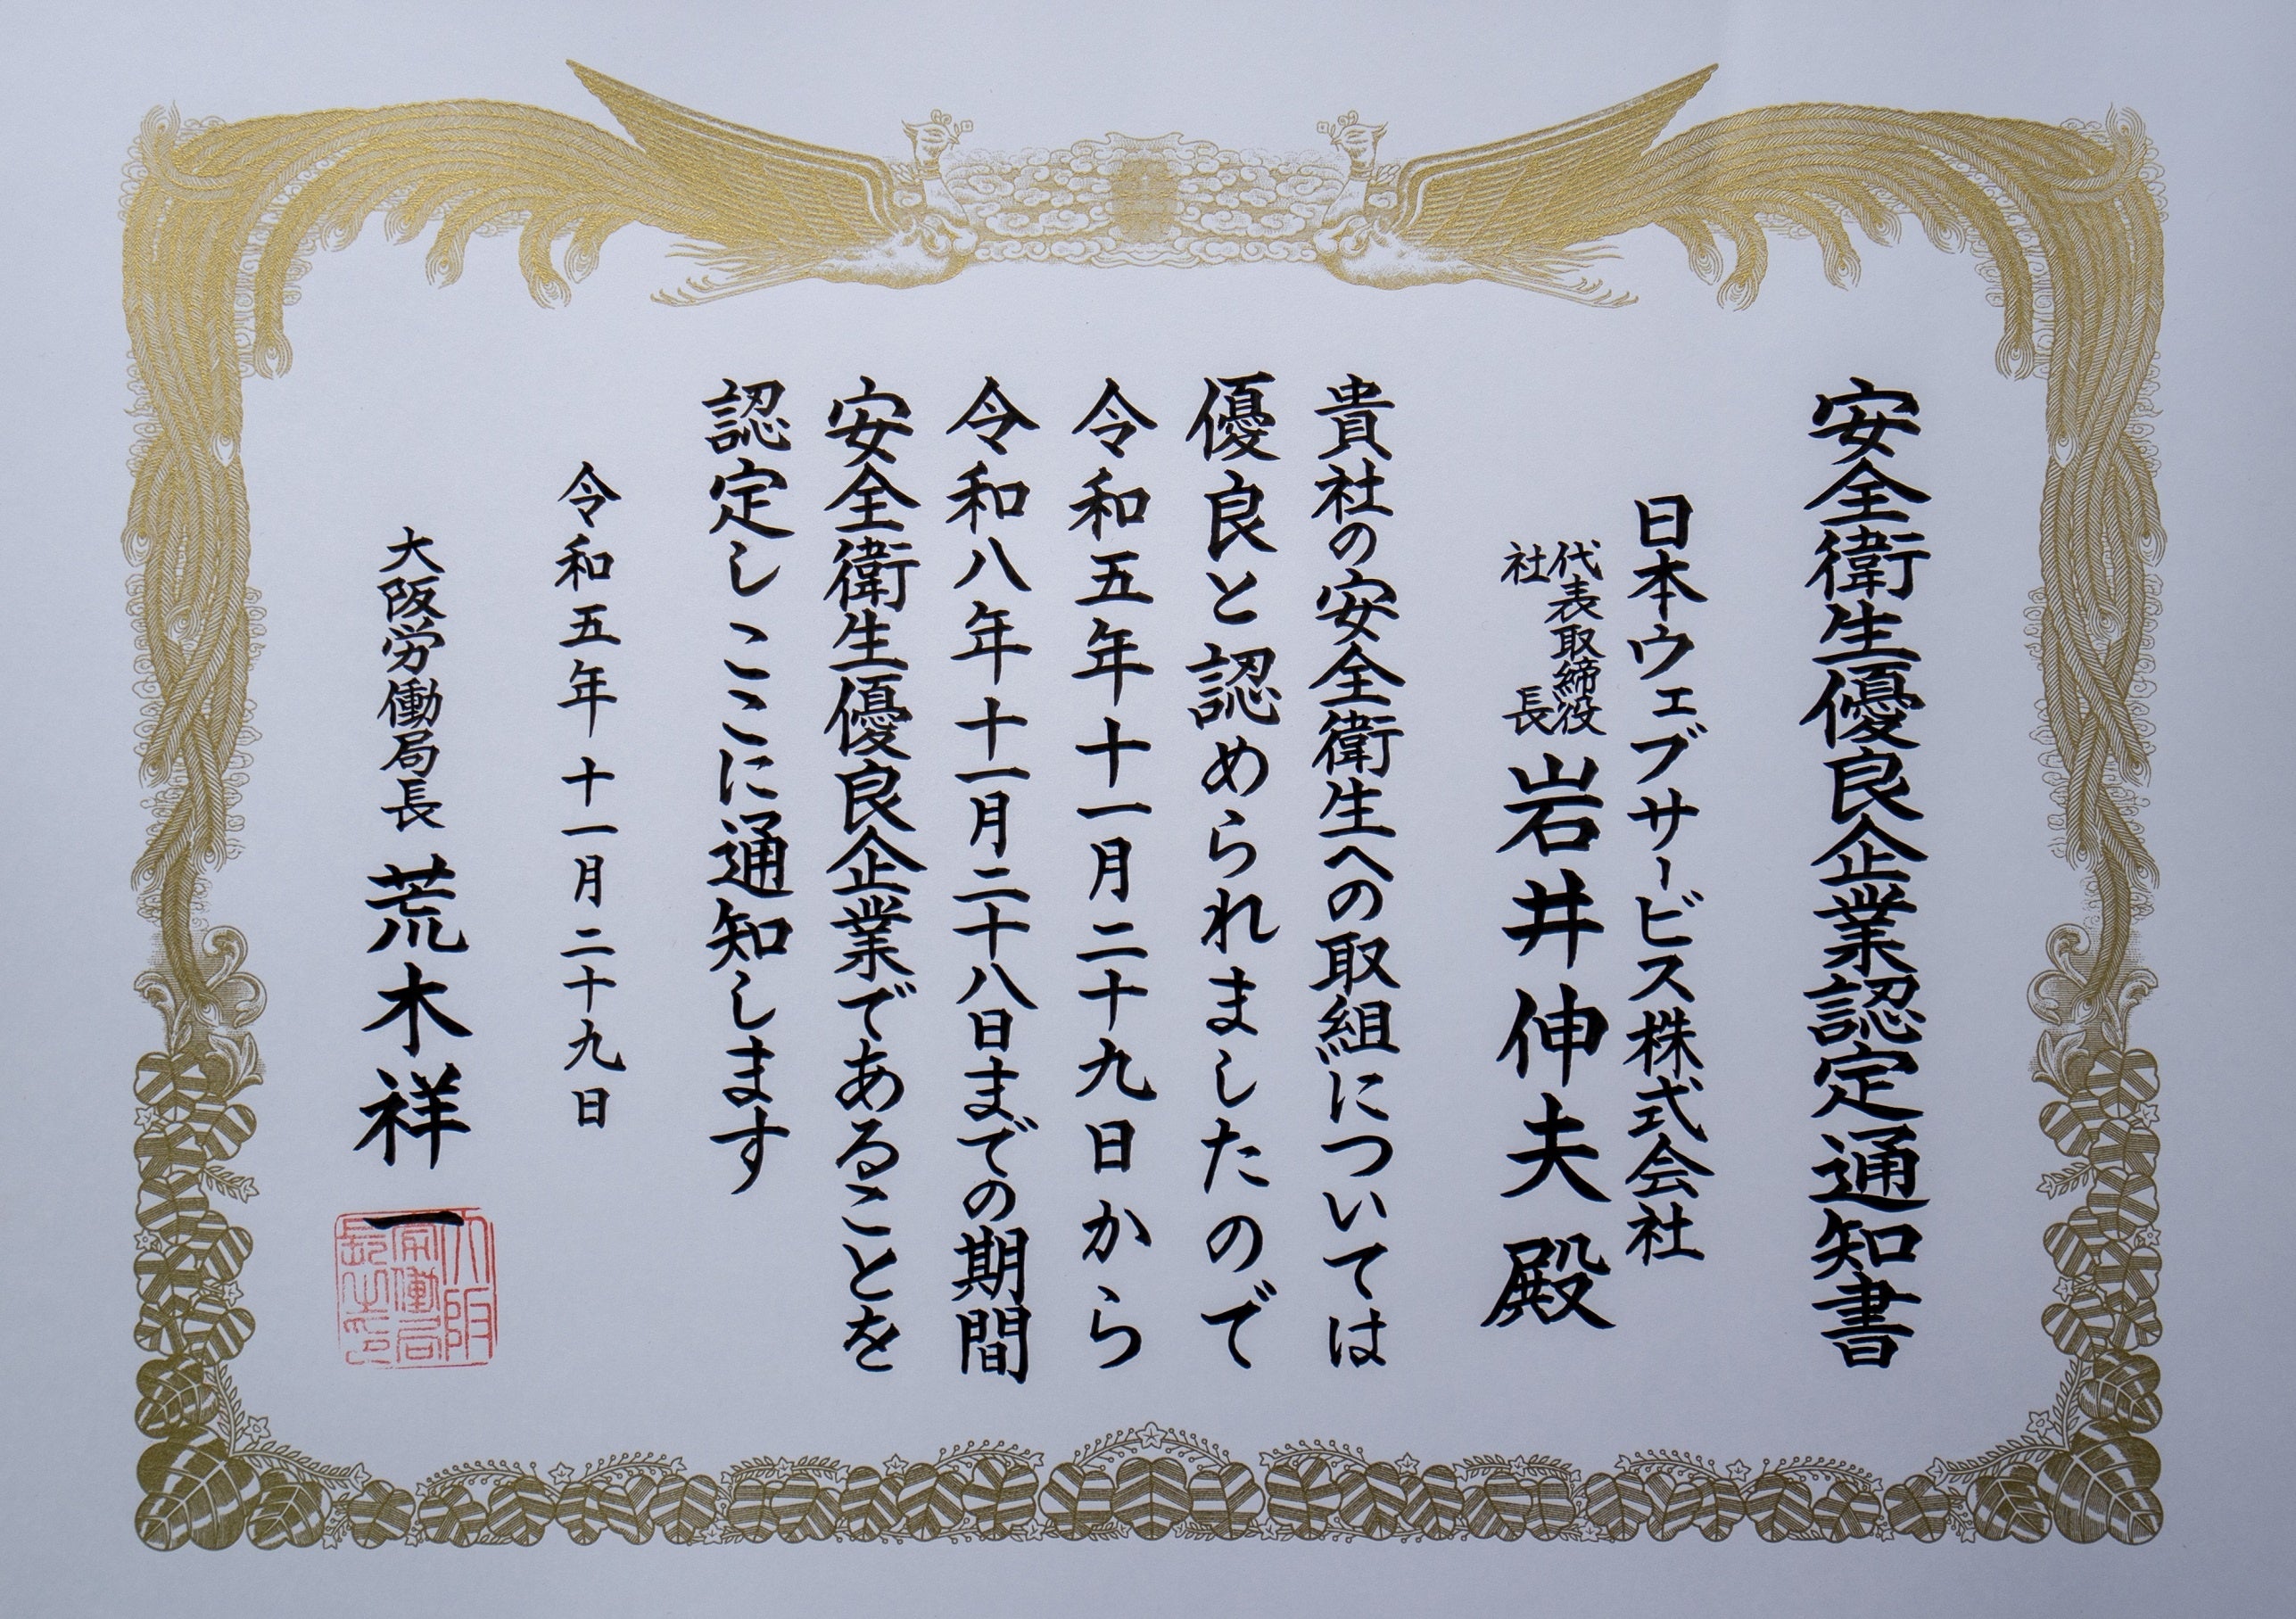 安全衛生優良企業認定通知書
日本ウェブサービス株式会社
代表取締役
社長
岩井伸夫殿
貴社の安全衛生への取組については
優良と認められましたので
令和五年十一月二十九日から
令和八年十一月二十八日までの期間
安全衛生優良企業であることを
認定しここに通知します
令和五年十一月二十九日
大阪労働局長 荒木祥一
大阪
労働局
長之印